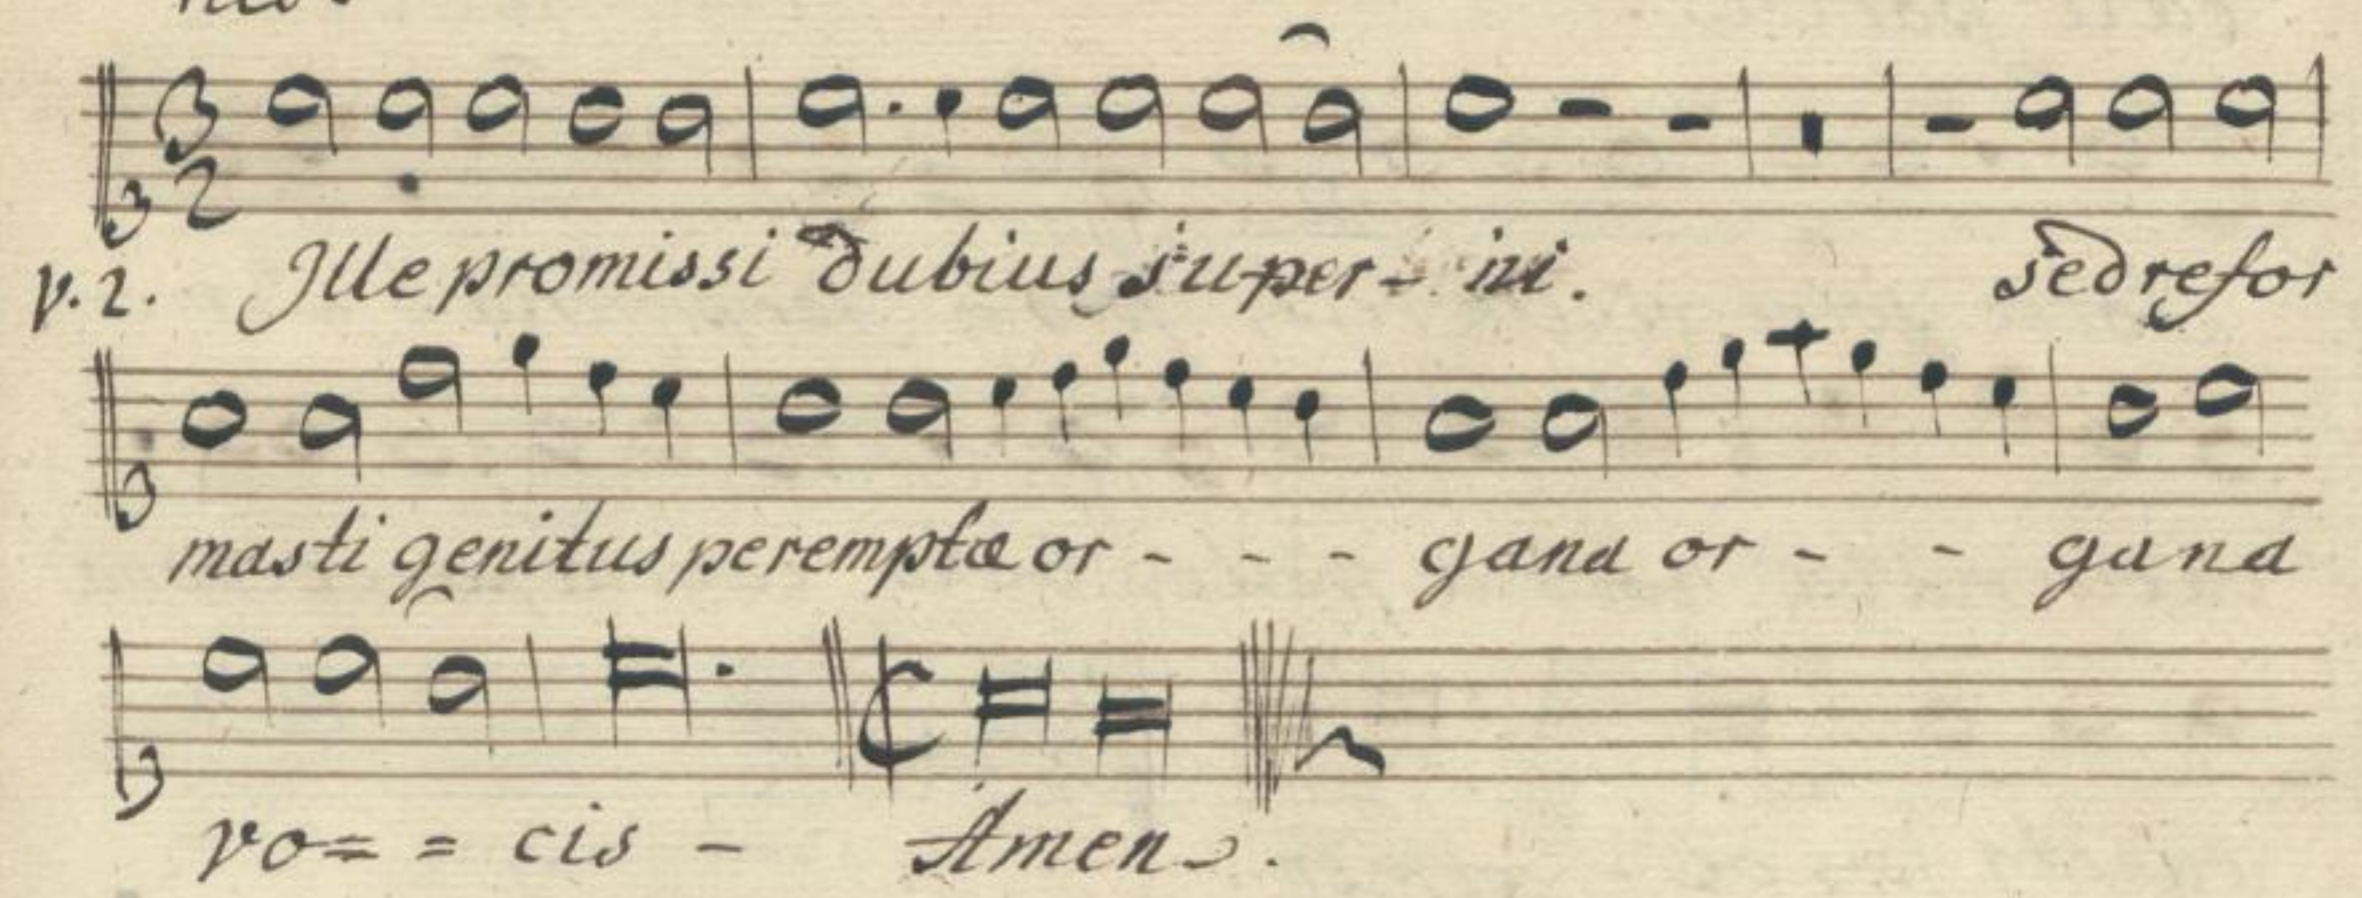 3
2
v. 2. Ille promissi dubius super - ni. sed refor
masti genitus peremptæ or - - - gana or - - gana
vo = = cis - Amen.